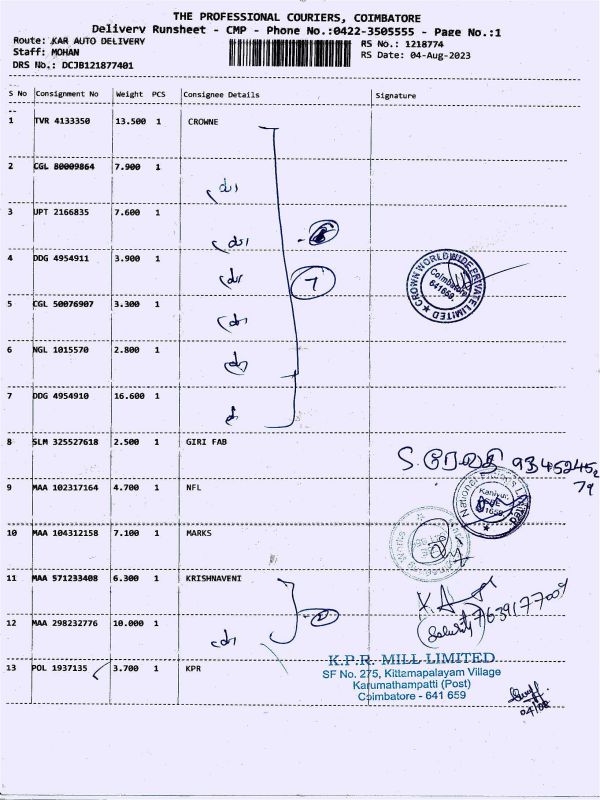 THE PROFESSIONAL COURIERS, COIMBATORE
Delivery Runsheet - CMP - Phone No.:0422-3505555 - Page No.:1
Route: KAR AUTO DELIVERY
RS No.: 1218774
Staff: MOHAN
RS Date: 04-Aug-2023
DRS No.: DCJB121877401
S No Consignment No Weight PCS Consignee Details Signature
1 TVR 4133350 13.500 1 CROWNE
2 CGL 80009864 7.900 1
3 UPT 2166835 7.600 1
4 DDG 4954911 3.900 1
7
CROWN WORLDWIDE PRIVATE LIMITED
Coimbatore
641659.
5 CGL 50076907 3.300 1
6 NGL 1015570 2.800 1
7 DDG 4954910 16.600 1
8 SLM 325527618 2.500 1 GIRI FAB
9 MAA 102317164 4.700 1 NFL
10 MAA 104312158 7.100 1 MARKS
11 MAA 571233408 6.300 1 KRISHNAVENI
12 MAA 298232776 10.000 1
13 POL 1937135 3.700 1 KPR
K.P.R. MILL LIMITED
SF No. 275, Kittampalayam Village
Karumathampatti (Post)
Coimbatore - 641 659
04/08